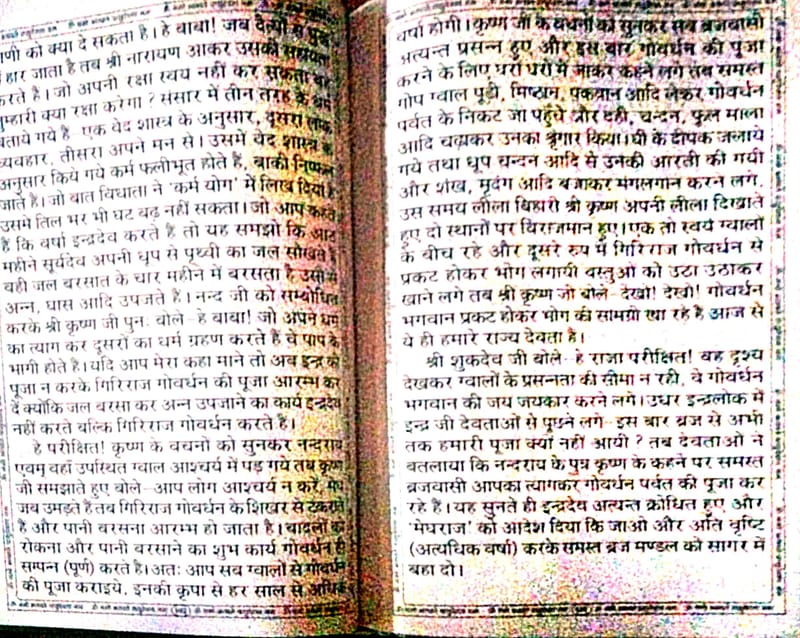 णी को क्या दे सकता है। हे बाबा! जब दैत्यों से युद्ध
हार जाता है तब श्री नारायण आकर उसकी सहायता
करते है। जो अपनी रक्षा स्वय नहीं कर सकता वह
तुम्हारी क्या रक्षा करेगा? संसार में तीन तरह के कर्म
बताये गये है-एक वेद शास्त्र के अनुसार, दूसरा लोक
व्यवहार, तीसरा अपने मन से। उसमें वेद शास्त्र के
अनुसार किये गये कर्म फलीभूत होते हैं, बाकी निष्फल
जाते है। जो बात विधाता ने 'कर्म योग' में लिख दिया है
उसमे तिल भर भी घट बढ़ नहीं सकता। जो आप कहते
है कि वर्षा इन्द्रदेव करते हैं तो यह समझो कि आठ
महीने सूर्यदेव अपनी धूप से पृथ्वी का जल सोखते है
वही जल बरसात के चार महीने में बरसता है उसी से
अन्न, घास आदि उपजते हैं। नन्द जी को सम्बोधित
करके श्री कृष्ण जी पुनः बोले-हे बाबा! जो अपने धर्म
का त्याग कर दूसरों का धर्म ग्रहण करते हैं वे पाप के
भागी होते है। यदि आप मेरा कहा माने तो अब इन्द्र की
पूजा न करके गिरिराज गोवर्धन की पूजा आरम्भ कर
दें क्योंकि जल बरसा कर अन्न उपजाने का कार्य इन्द्रदेव
नहीं करते बल्कि गिरिराज गोवर्धन करते है।
हे परीक्षित! कृष्ण के वचनो को सुनकर नन्दराय
एवम् वहाँ उपस्थित ग्वाल आश्चर्य में पड़ गये तब कृष्ण
जी समझाते हुए बोले-आप लोग आश्चर्य न करें, मेघ
जब उमड़ते हैं तब गिरिराज गोवर्धन के शिखर से टकराते
है और पानी बरसना आरम्भ हो जाता है। बादलों को
रोकना और पानी बरसाने का शुभ कार्य गोवर्धन ही
सम्पन्न (पूर्ण) करते है। अतः आप सब ग्वालों से गोवर्धन
की पूजा कराइये, इनकी कृपा से हर साल से अधिक
वर्षा होगी। कृष्ण जी के वचनों को सुनकर सब ब्रजवासी
अत्यन्त प्रसन्न हुए और इस बार गोवर्धन की पूजा
करने के लिए घरों घरों में जाकर कहने लगे तब समस्त
गोप ग्वाल पूड़ी, मिष्ठान, पकवान आदि लेकर गोवर्धन
पर्वत के निकट जा पहुँचे और दही, चन्दन, फूल माला
आदि चढ़ाकर उनका श्रृंगार किया। घी के दीपक जलाये
गये तथा धूप चन्दन आदि से उनकी आरती की गयी
और शंख, मृदंग आदि बजाकर मंगलगान करने लगे,
उस समय लीला बिहारी श्री कृष्ण अपनी लीला दिखाते
हुए दो स्थानों पर विराजमान हुए। एक तो स्वयं ग्वालों
के बीच रहे और दूसरे रुप में गिरिराज गोवर्धन से
प्रकट होकर भोग लगायी वस्तुओं को उठा उठाकर
खाने लगे तब श्री कृष्ण जी बोले-देखो! देखो! गोवर्धन
भगवान प्रकट होकर भोग की सामग्री खा रहे है आज से
ये ही हमारे राज्य देवता है।
श्री शुकदेव जी बोले-हे राजा परीक्षित! वह दृश्य
देखकर ग्वालों के प्रसन्नता की सीमा न रही, वे गोवर्धन
भगवान की जय जयकार करने लगे। उधर इन्द्रलोक में
इन्द्र जी देवताओं से पूछने लगे-इस बार ब्रज से अभी
तक हमारी पूजा क्यों नहीं आयी? तब देवताओं ने
बतलाया कि नन्दराय के पुत्र कृष्ण के कहने पर समस्त
ब्रजवासी आपका त्यागकर गोवर्धन पर्वत की पूजा कर
रहे हैं। यह सुनते ही इन्द्रदेव अत्यन्त क्रोधित हुए और
'मेघराज' को आदेश दिया कि जाओ और अति वृष्टि
(अत्यधिक वर्षा) करके समस्त ब्रज मण्डल को सागर में
बहा दो।